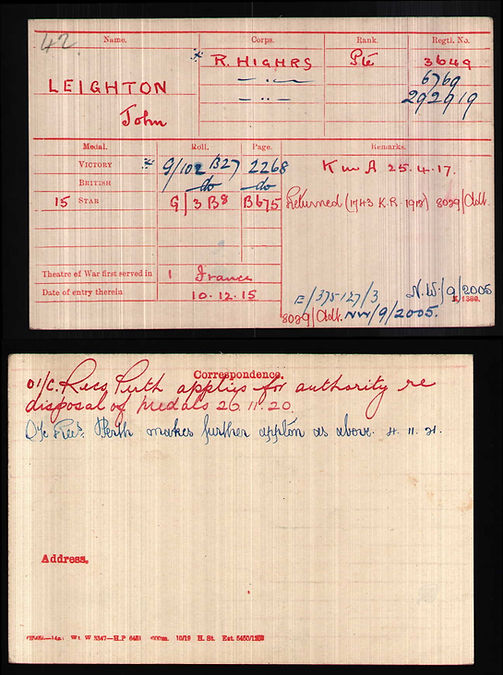 42
Name. Corps. Rank. Regtl. No.
* R. HIGHRS Pte 3649
LEIGHTON —..— 6769
John —..— 292919
Medal. Roll. Page. Remarks.
VICTORY * G/102 B27 2268 K in A 25.4.17.
BRITISH do do
15 STAR G/3 B8 B675 Returned (1743 K.R. 1912) 8039/Adt.
Theatre of War first served in 1 France
Date of entry therein 10.12.15
E/375127/3 N.W/9/2005
8039/Adt. NW/9/2005. K 1380.
Correspondence.
O i/c. Recs Perth applies for authority re
disposal of medals 26.11.20.
O/c Recs. Perth makes further appltón as above. 4.11.21.
Address.